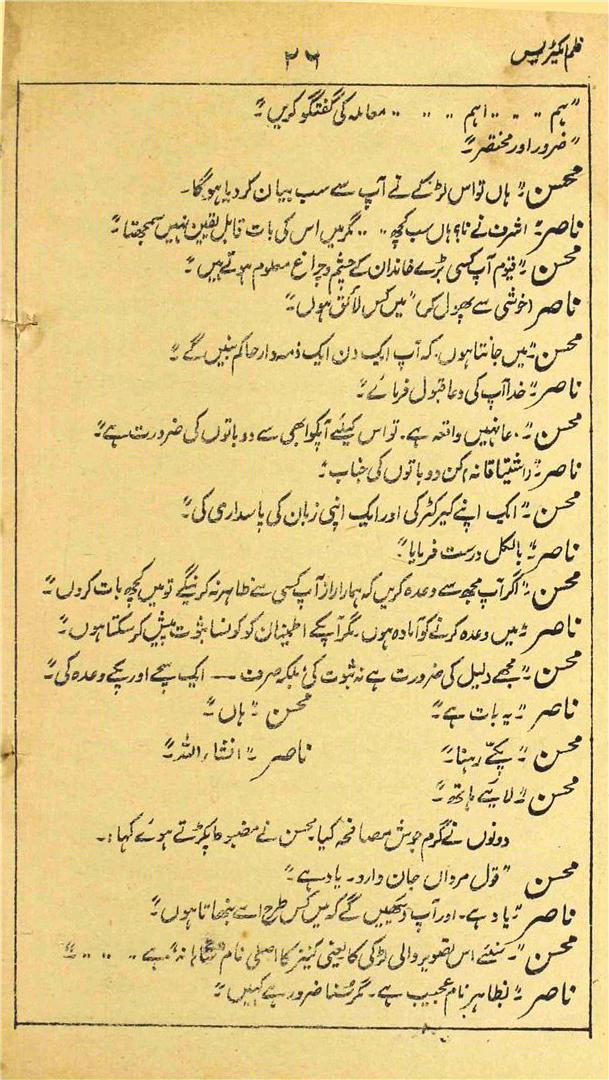 فلم ایکٹریس
۲۶
"ہم ۔۔ ۔۔ اہم ۔۔ ۔۔ ۔۔ ۔۔ معاملہ کی گفتگو کریں"
"ضرور اور مختصر"
محسن:۔ ہاں تو اس لڑکے نے آپ سے سب بیان کر دیا ہوگا۔
ناصر:۔ اشرف نے نا؟ ہاں سب کچھ ۔۔ ۔۔ مگر میں اس کی بات قابل یقین نہیں سمجھتا"
محسن:۔ "قیوم آپ کسی بڑے خاندان کے چشم و چراغ معلوم ہوتے ہیں"
ناصر (خوشی سے پھول کر) "میں کس لائق ہوں"
محسن:۔ "میں جانتا ہوں۔ کہ آپ ایک دن ایک ذمہ دار حاکم بنیں گے"
ناصر:۔ "خدا آپ کی دعا قبول فرمائے"
محسن:۔ "دعا نہیں واقعہ ہے۔ تو اس کیلئے آپکو ابھی سے دو باتوں کی ضرورت ہے"
ناصر:۔ (اشتیاقانہ) کن دو باتوں کی جناب"
محسن:۔ "ایک اپنے کیرکٹر کی اور ایک اپنی زبان کی پاسداری کی"
ناصر:۔ "بالکل درست فرمایا"
محسن:۔ "اگر آپ مجھ سے وعدہ کریں کہ ہمارا راز آپ کسی سے ظاہر نہ کرینگے تو میں کچھ بات کروں"
ناصر:۔ "میں وعدہ کرنے کو آمادہ ہوں۔ مگر آپکے اطمینان کو کونسا ثبوت پیش کر سکتا ہوں"
محسن:۔ "مجھے دلیل کی ضرورت ہے نہ ثبوت کی بلکہ صرف — ایک سچے اور پکے وعدہ کی"
ناصر:۔ "یہ بات ہے" محسن:۔ "ہاں"
محسن:۔ "پکے رہنا" ناصر:۔ "انشاء اللہ"
محسن:۔ "لایئے ہاتھ"
دونوں نے گرم جوش مصافحہ کیا۔ محسن نے مضبوط پکڑتے ہوئے کہا:۔
محسن "قول مرداں جان دارد۔ یاد ہے"
ناصر:۔ "یاد ہے۔ اور آپ دیکھیں گے کہ میں کس طرح اسے نبھاتا ہوں"
محسن:۔ "سنئے اس تصویر والی لڑکی کا یعنی کنیز کا اصلی نام ہے ۔۔ ۔۔ ۔۔"
ناصر:۔ "بظاہر نام عجیب ہے۔ مگر سُنا ضرور ہے کہیں"